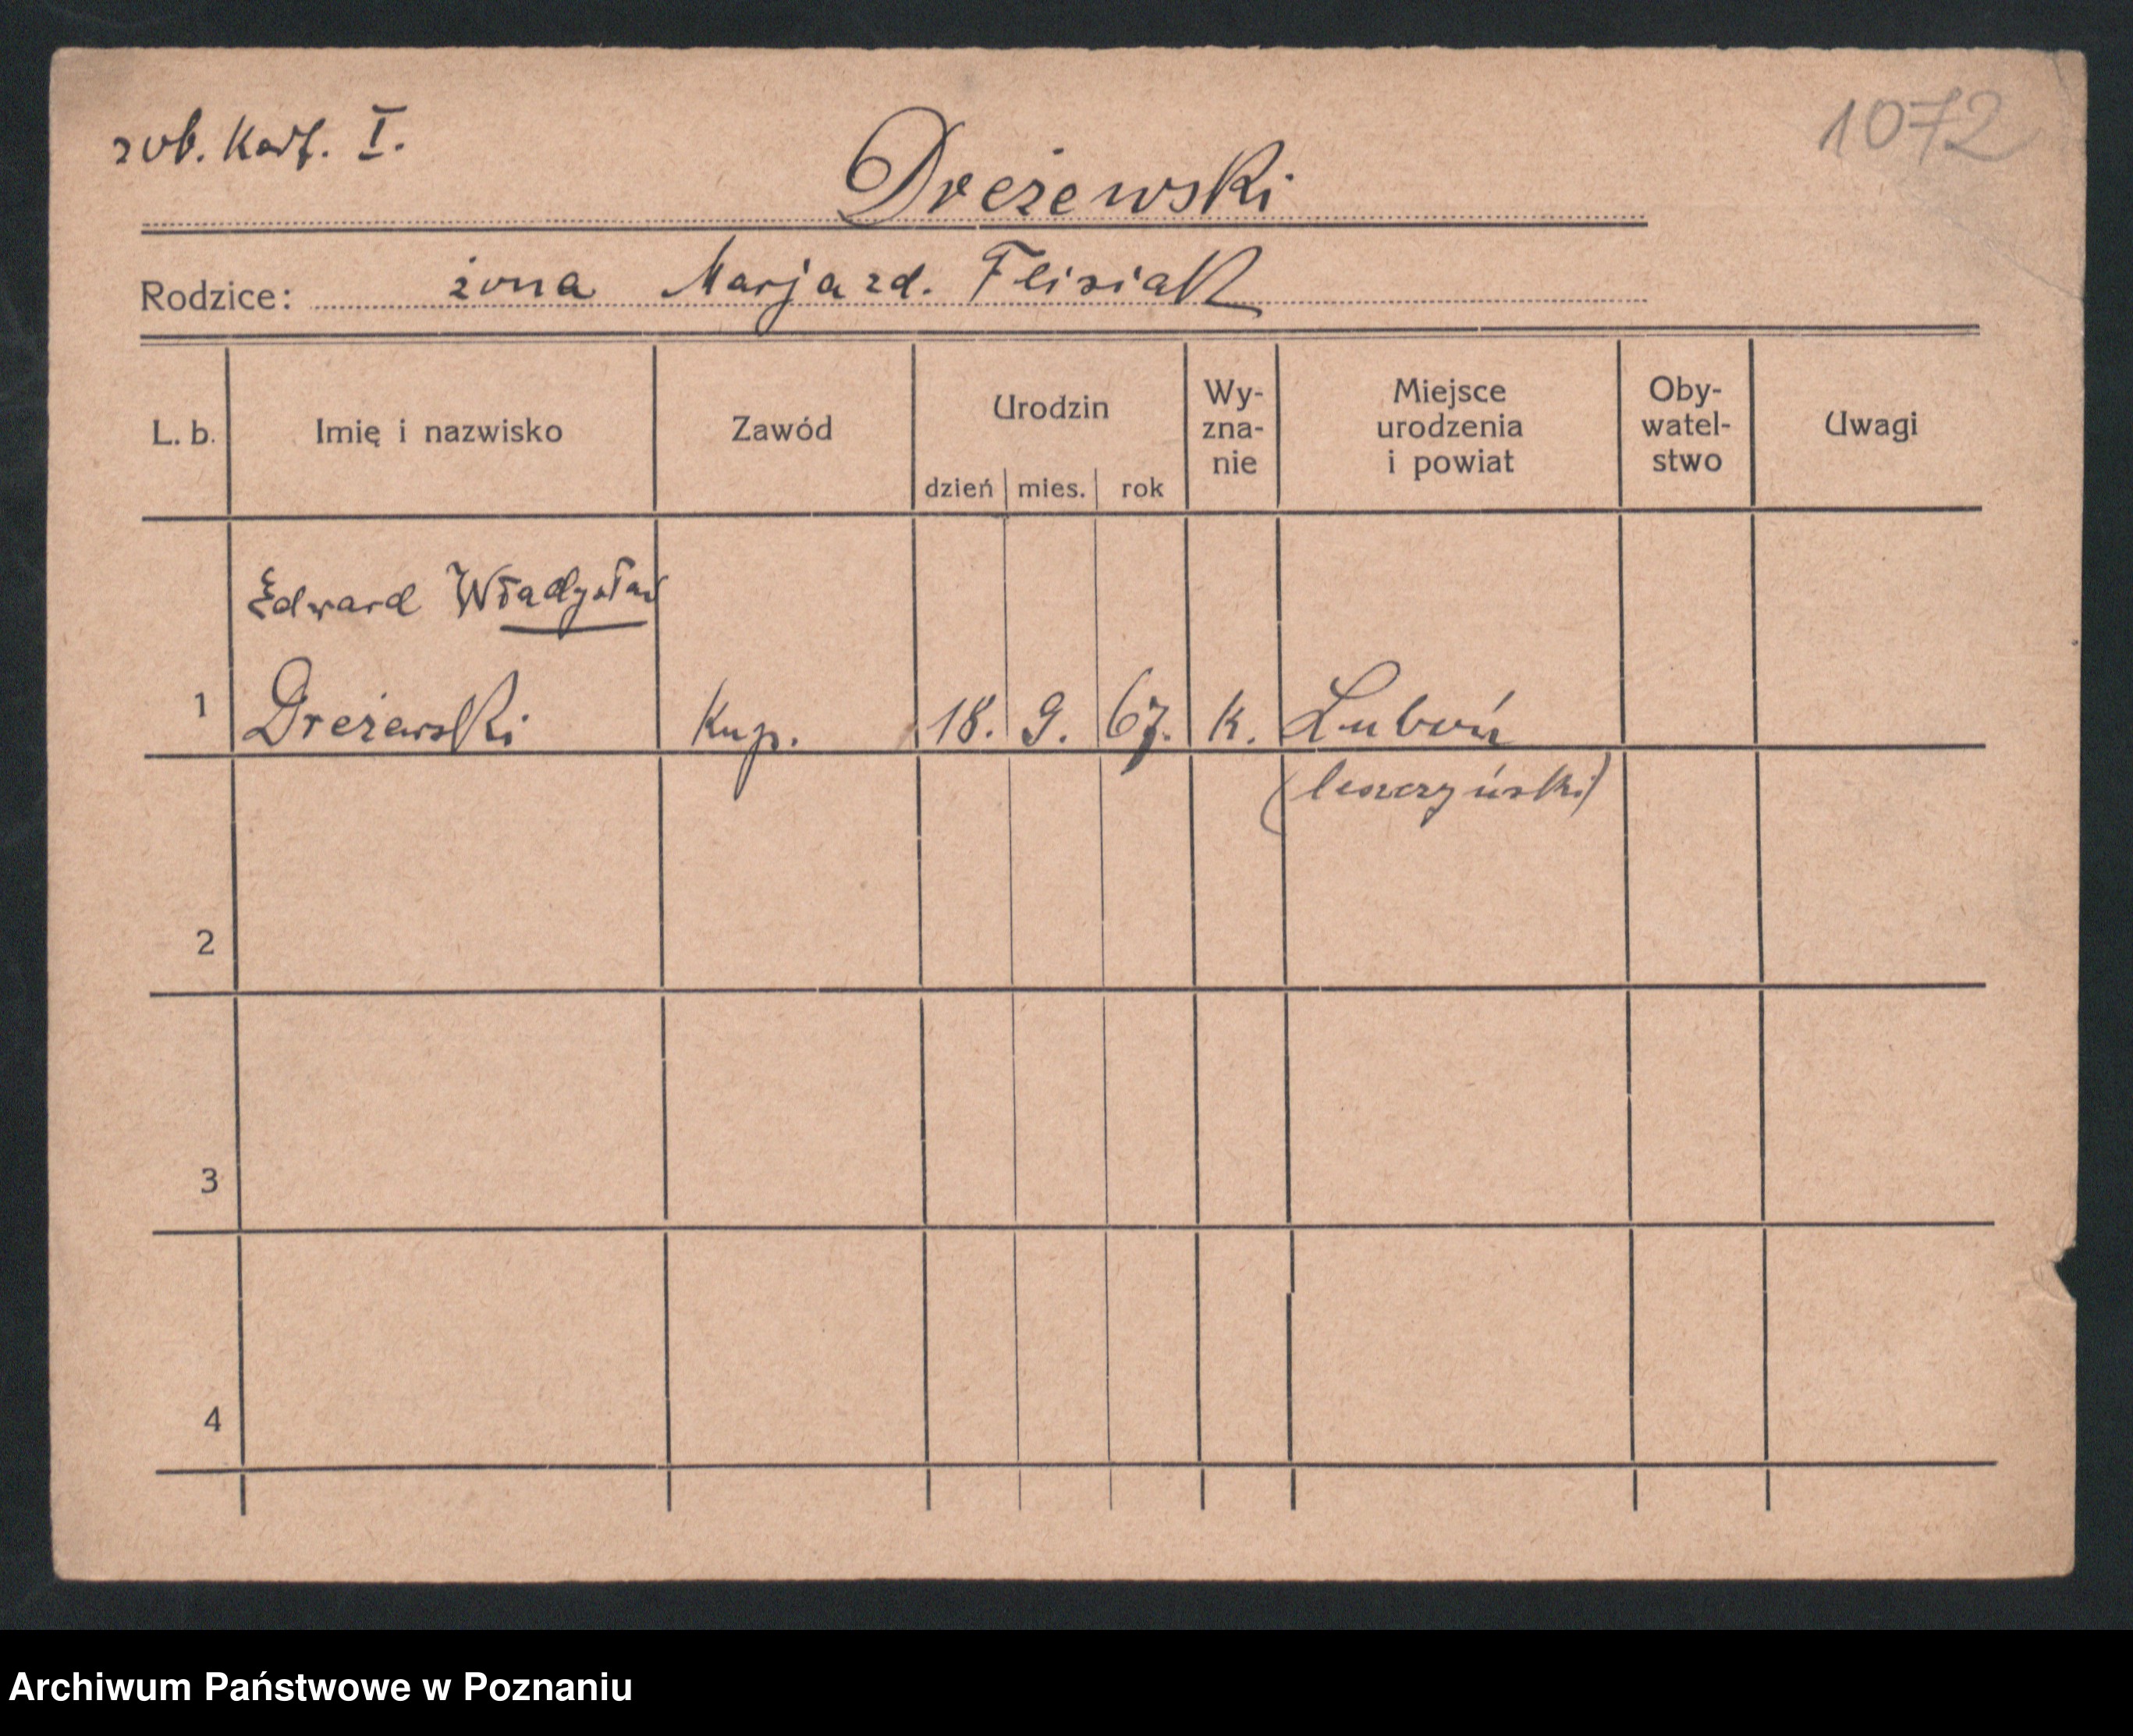 zob. Kart. I.
1072
Dreżewski
Rodzice: żona Marja zd. Flisiak
L. b. Imię i nazwisko Zawód Urodzin dzień mies. rok Wy-zna-nie Miejsce urodzenia i powiat Oby-watel-stwo Uwagi
Edward Władysław
1 Dreżewski Kup. 18. 9. 67. K. Luboń
(leszczyński)
2
3
4
Archiwum Państwowe w Poznaniu